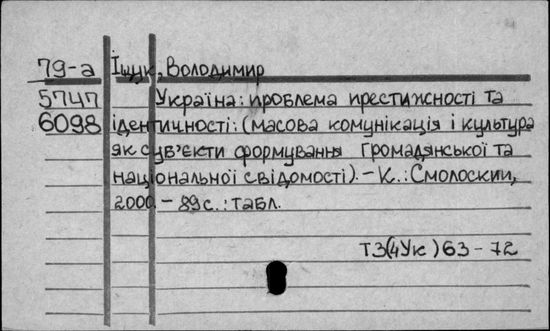 79-а Іщук, Володимир
5747 Україна: проблема престижності та
6098 ідентичності: (масова комунікація і культура
як суб'єкти формування громадянської та
національної свідомості). - К.: Смолоскип,
2000. - 89 с.: табл.
Т3(4Ук)63-72